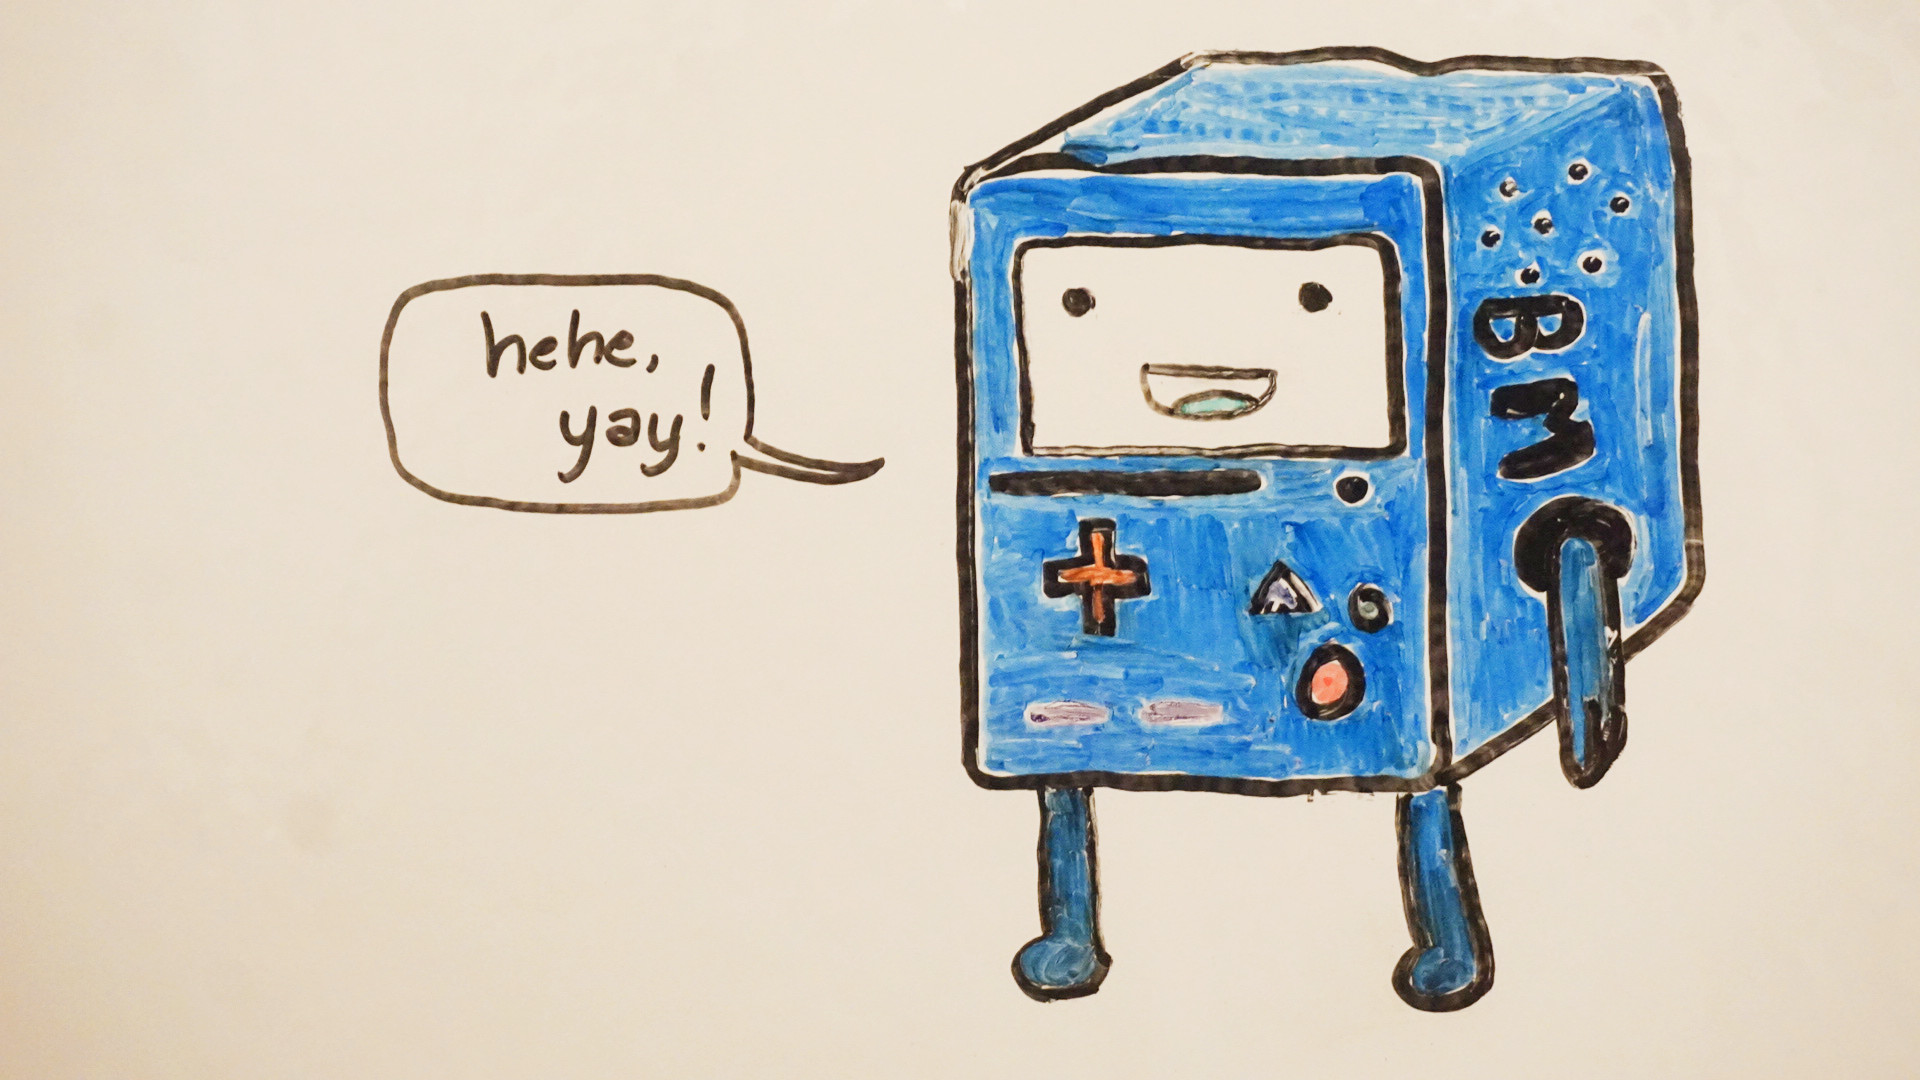 hehe,
yay!
BMO